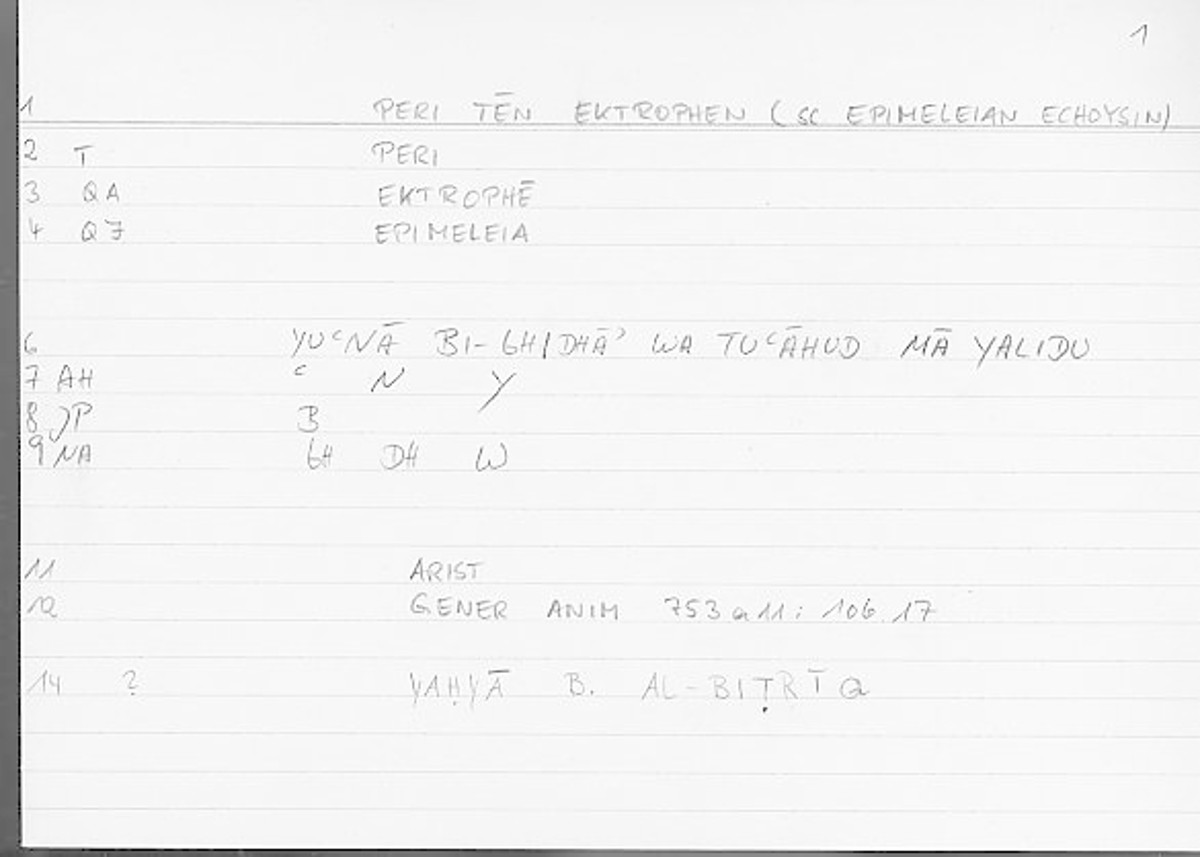 1
1 PERI TĒN EKTROPHEN (SC EPIMELEIAN ECHOYSIN)
2 T PERI
3 QA EKTROPHĒ
4 Q7 EPIMELEIA
6 YUʿNĀ BI-GHIDHĀʾ WA TUʿĀHUD MĀ YALIDU
7 AH ʿ N Y
8 JP B
9 NA GH DH W
11 ARIST
12 GENER ANIM 753 a 11 : 106.17
14 ? YAḤYĀ B. AL-BIṬRĪQ